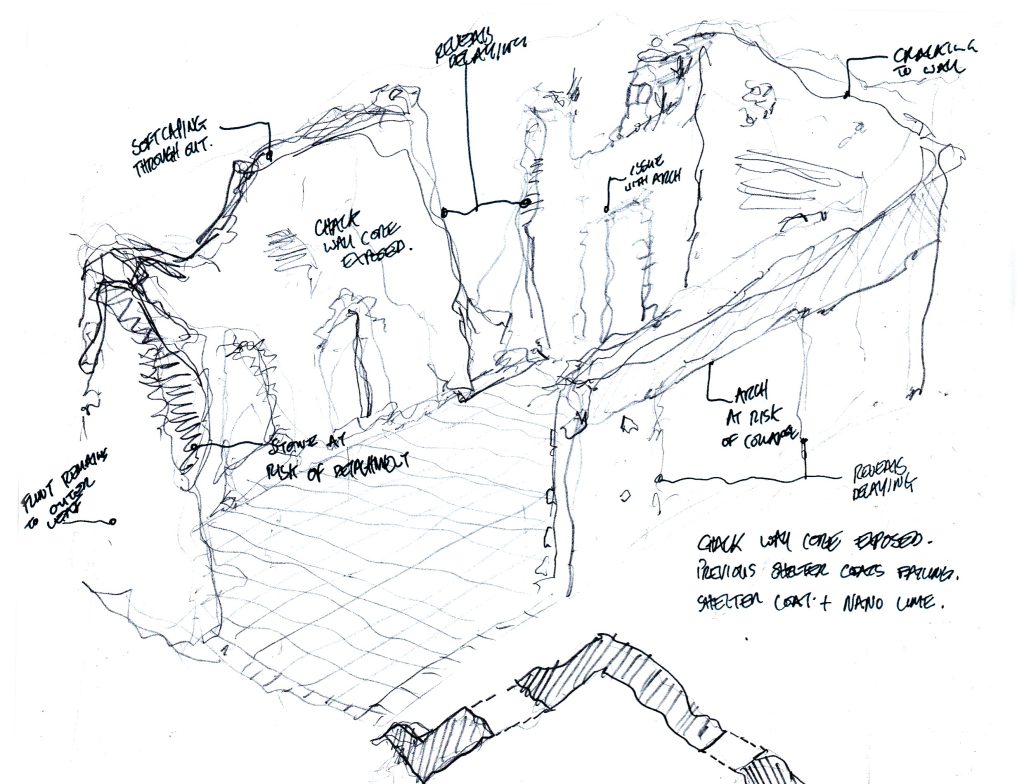 REVEALS
DELAYING
CRACKING
TO WALL
SOFT CAPING
THROUGH OUT.
ISSUE
WITH ARCH
CHALK
WALL CORE
EXPOSED.
ARCH
AT RISK
OF COLLAPSE
STONE AT
RISK OF DETACHMENT
FLINT REMAINS
TO OUTER
REVEALS
DELAYING
CHALK WALL CORE EXPOSED.
PREVIOUS SHELTER COATS FAILING.
SHELTER COAT + NANO LIME.